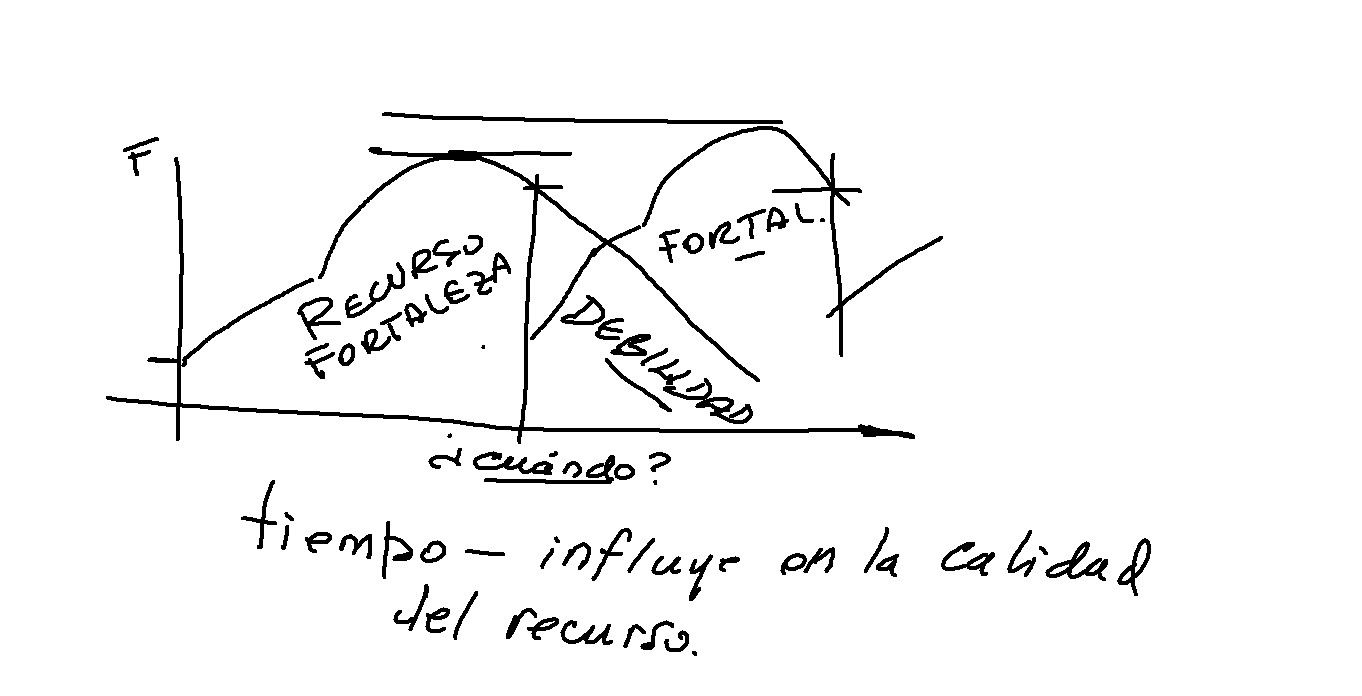 F
RECURSO
FORTALEZA
FORTAL.
DEBILIDAD
¿cuándo?
tiempo - influye en la calidad
del recurso.